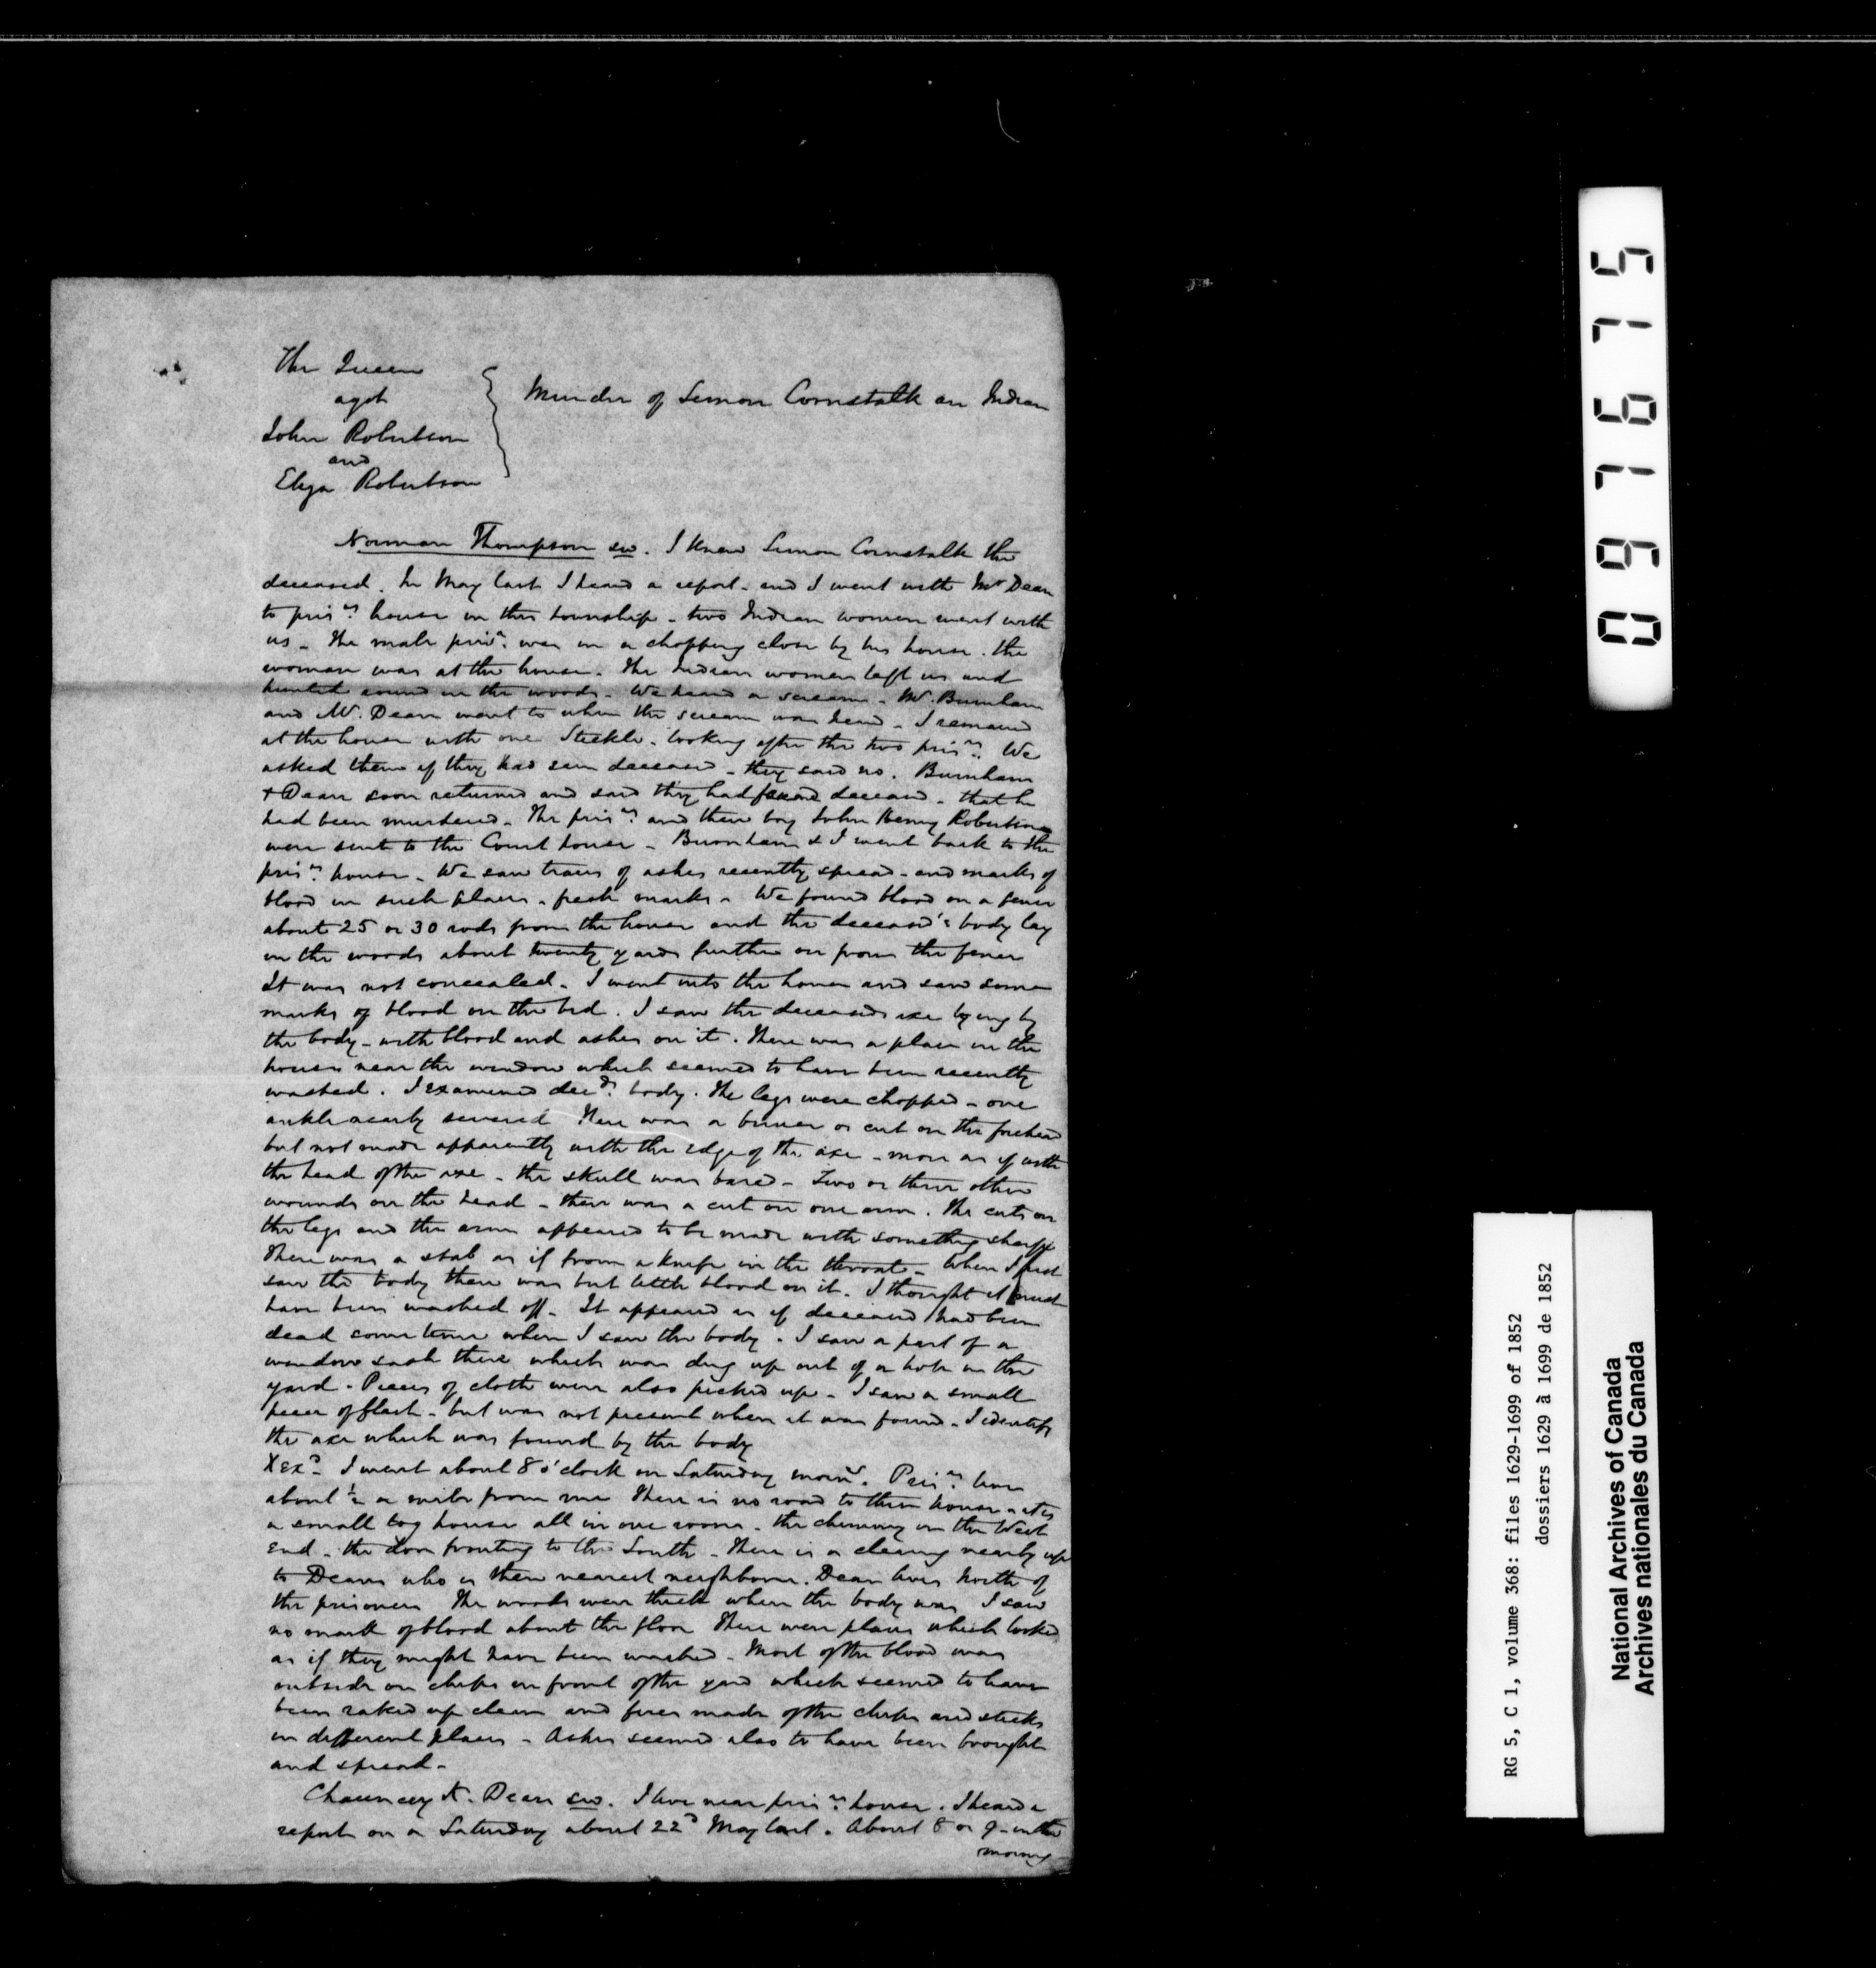 The Queen
agst
John Robertson
and
Eliza Robertson
Murder of Simon Cornstalk an Indian
Norman Thompson sw. I knew Simon Cornstalk the
deceased. In May last I heard a report - and I went with Mr Dean
to prisrs house in this township - two Indian women went with
us - The male prisr was in a chopping close by his house. the
woman was at the house. The Indian women left us and
hunted around in the woods - We heard a scream - Mr. Burnham
and Mr. Dean went to where the scream was heard - I remained
at the house with one Stickle - looking after the two prisrs. We
asked them if they had seen deceased - they said no. Burnham
+ Dean soon returned and said they had found deceased - that he
had been murdered. The prisrs and their boy John Henry Robertson
were sent to the Court house - Burnham & I went back to the
prisrs house - We saw traces of ashes recently spread - and marks of
blood in such places - fresh marks - We found blood on a fence
about 25 or 30 rods from the house and the deceased's body lay
in the woods about twenty yards further on from the fence
It was not concealed - I went into the house and saw some
marks of blood on the bed. I saw the deceaseds axe lying by
the body - with blood and ashes on it. There was a place in the
house near the window which seemed to have been recently
washed. I examined decds body. The legs were chopped - one
ankle nearly severed There was a bruise or cut on the forehead
but not made apparently with the edge of the axe - more as if with
the head of the axe - the skull was bared - Two or three other
wounds on the head - there was a cut on one arm. The cuts on
the legs and the arm appeared to be made with something sharp
There was a stab as if from a knife in the throat - When I first
saw the body there was but little blood on it. I thought it must
have been washed off - It appeared as if deceased had been
dead some time when I saw the body. I saw a part of a
window sash there which was dug up out of a hole in the
yard - Pieces of cloth were also picked up - I saw a small
piece of flesh - but was not present when it was found - I identify
the axe which was found by the body
Xexd - I went about 8 o'clock on Saturday morng. Prisrs live
about ½ a mile from me There is no road to their house - its
a small log house all in one room - the chimney in the West
end - the door fronting to the South - There is a clearing nearly up
to Deans who is their nearest neighbour. Dean lives North of
the prisoners The woods were thick where the body was I saw
no mark of blood about the floor There were places which looked
as if they might have been washed - Most of the blood was
outside on chips in front of the yard which seemed to have
been raked up clean and fires made of the chips and sticks
in different places - Ashes seemed also to have been brought
and spread -
Chauncey K. Dean sw. I live near prisrs house. I heard a
report on a Saturday about 22d May last. About 8 or 9 - in the
morning
097675
RG 5, C 1, volume 368: files 1629-1699 of 1852
dossiers 1629 à 1699 de 1852
National Archives of Canada
Archives nationales du Canada